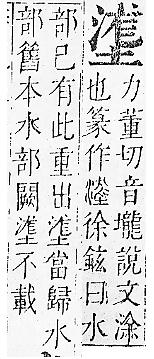 力董切音壠說文涂
也篆作徐鉉曰水
部已有此重出當歸水
部舊本水部闕不載